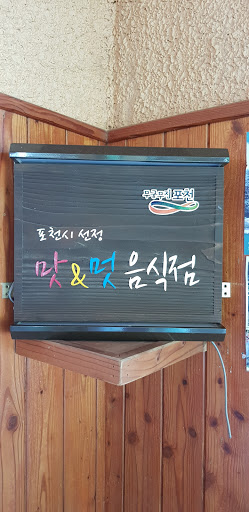 무궁무진 포천
포천시 선정
맛&멋 음식점